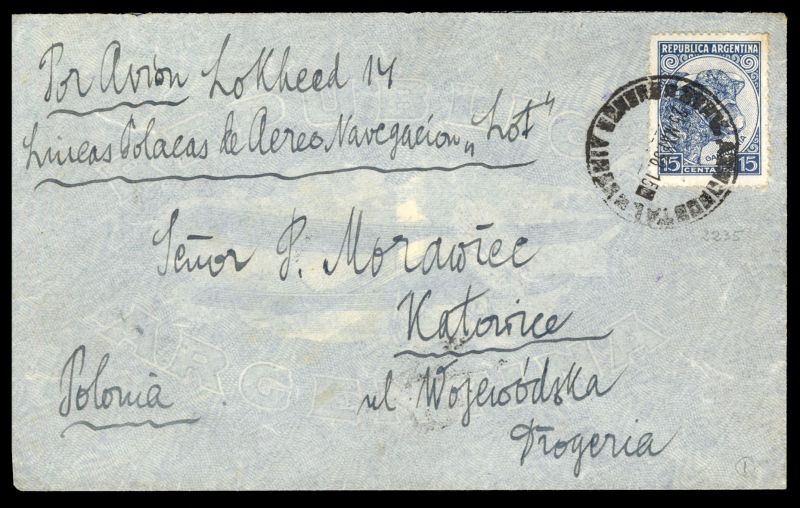 Por Avion Lokheed 14
Lineas Polacas de Aereo Navegacion „Lot"
REPUBLICA ARGENTINA
15 CENTAVOS 15
2235
Señor P. Morawiec
Katowice
Polonia
ul Wojewódska
Drogeria
ARGENTINA
1